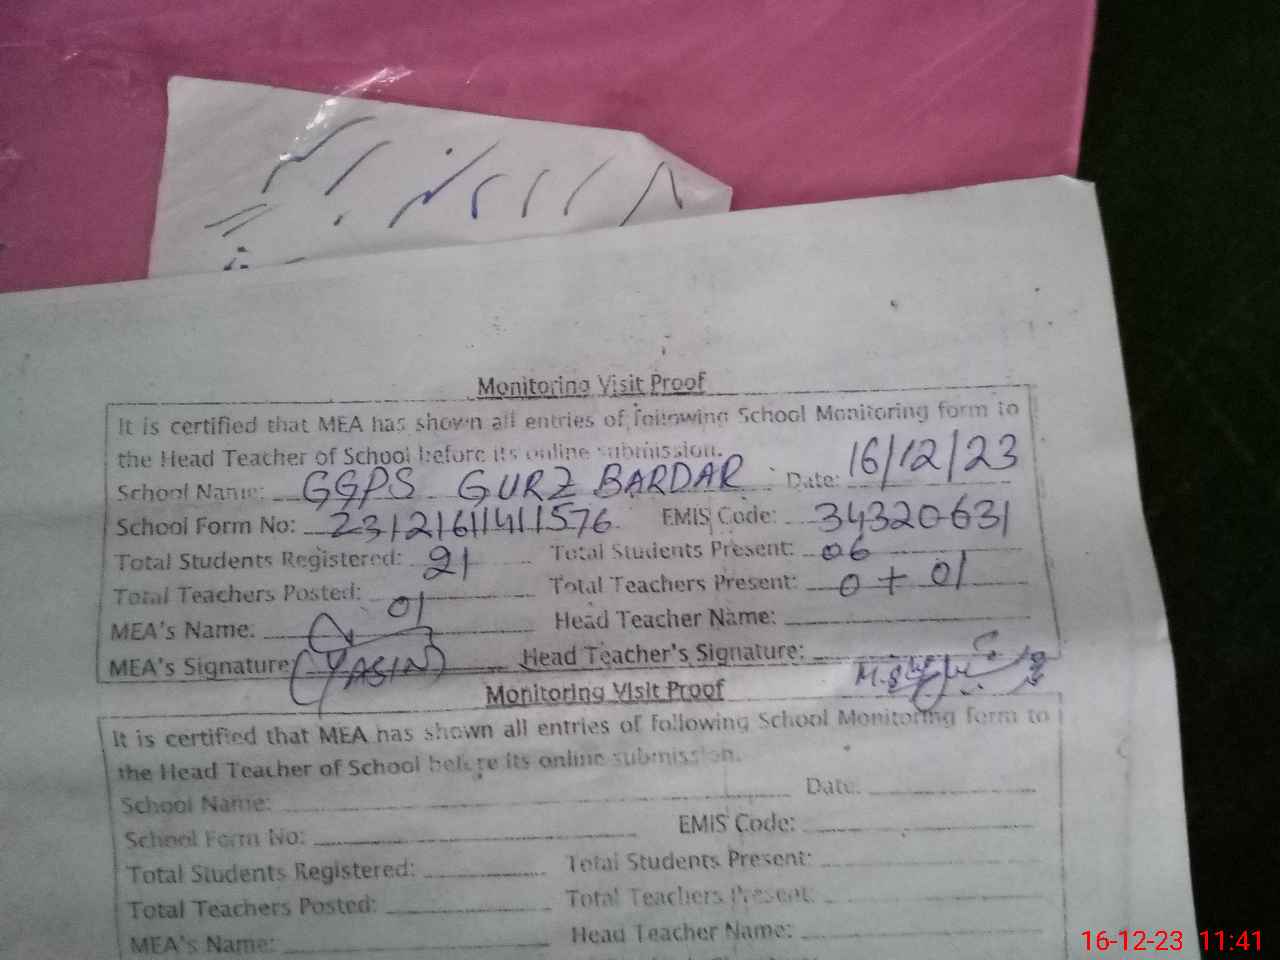 Monitoring Visit Proof
It is certified that MEA has shown all entries of following School Monitoring form to
the Head Teacher of School before its online submission.
School Name: GGPS GURZ BARDAR Date: 16/12/23
School Form No: 23121611411576 EMIS Code: 34320631
Total Students Registered: 21 Total Students Present: 06
Total Teachers Posted: 01 Total Teachers Present: 0 + 01
MEA's Name: Head Teacher Name:
MEA's Signature: (YASIN) Head Teacher's Signature:
Monitoring Visit Proof
It is certified that MEA has shown all entries of following School Monitoring form to
the Head Teacher of School before its online submission.
School Name: Date:
School Form No: EMIS Code:
Total Students Registered: Total Students Present:
Total Teachers Posted: Total Teachers Present:
MEA's Name: Head Teacher Name:
16-12-23 11:41